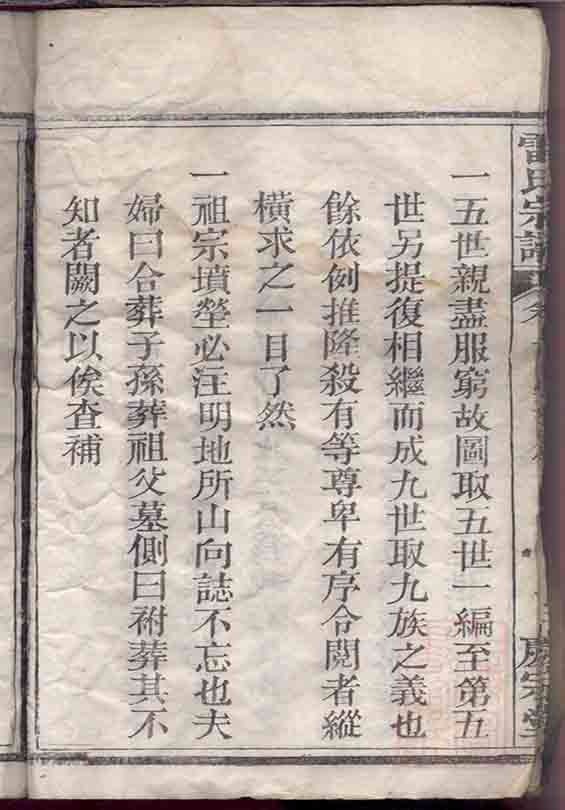 雷氏宗譜
一五世親盡服窮故圖取五世一編至第五
世另提復相繼而成九世取九族之義也
餘依例推隆殺有等尊卑有序合閱者縱
橫求之一目了然
一祖宗墳塋必注明地所山向誌不忘也夫
婦曰合葬子孫葬祖父墓側曰祔葬其不
知者闕之以俟查補